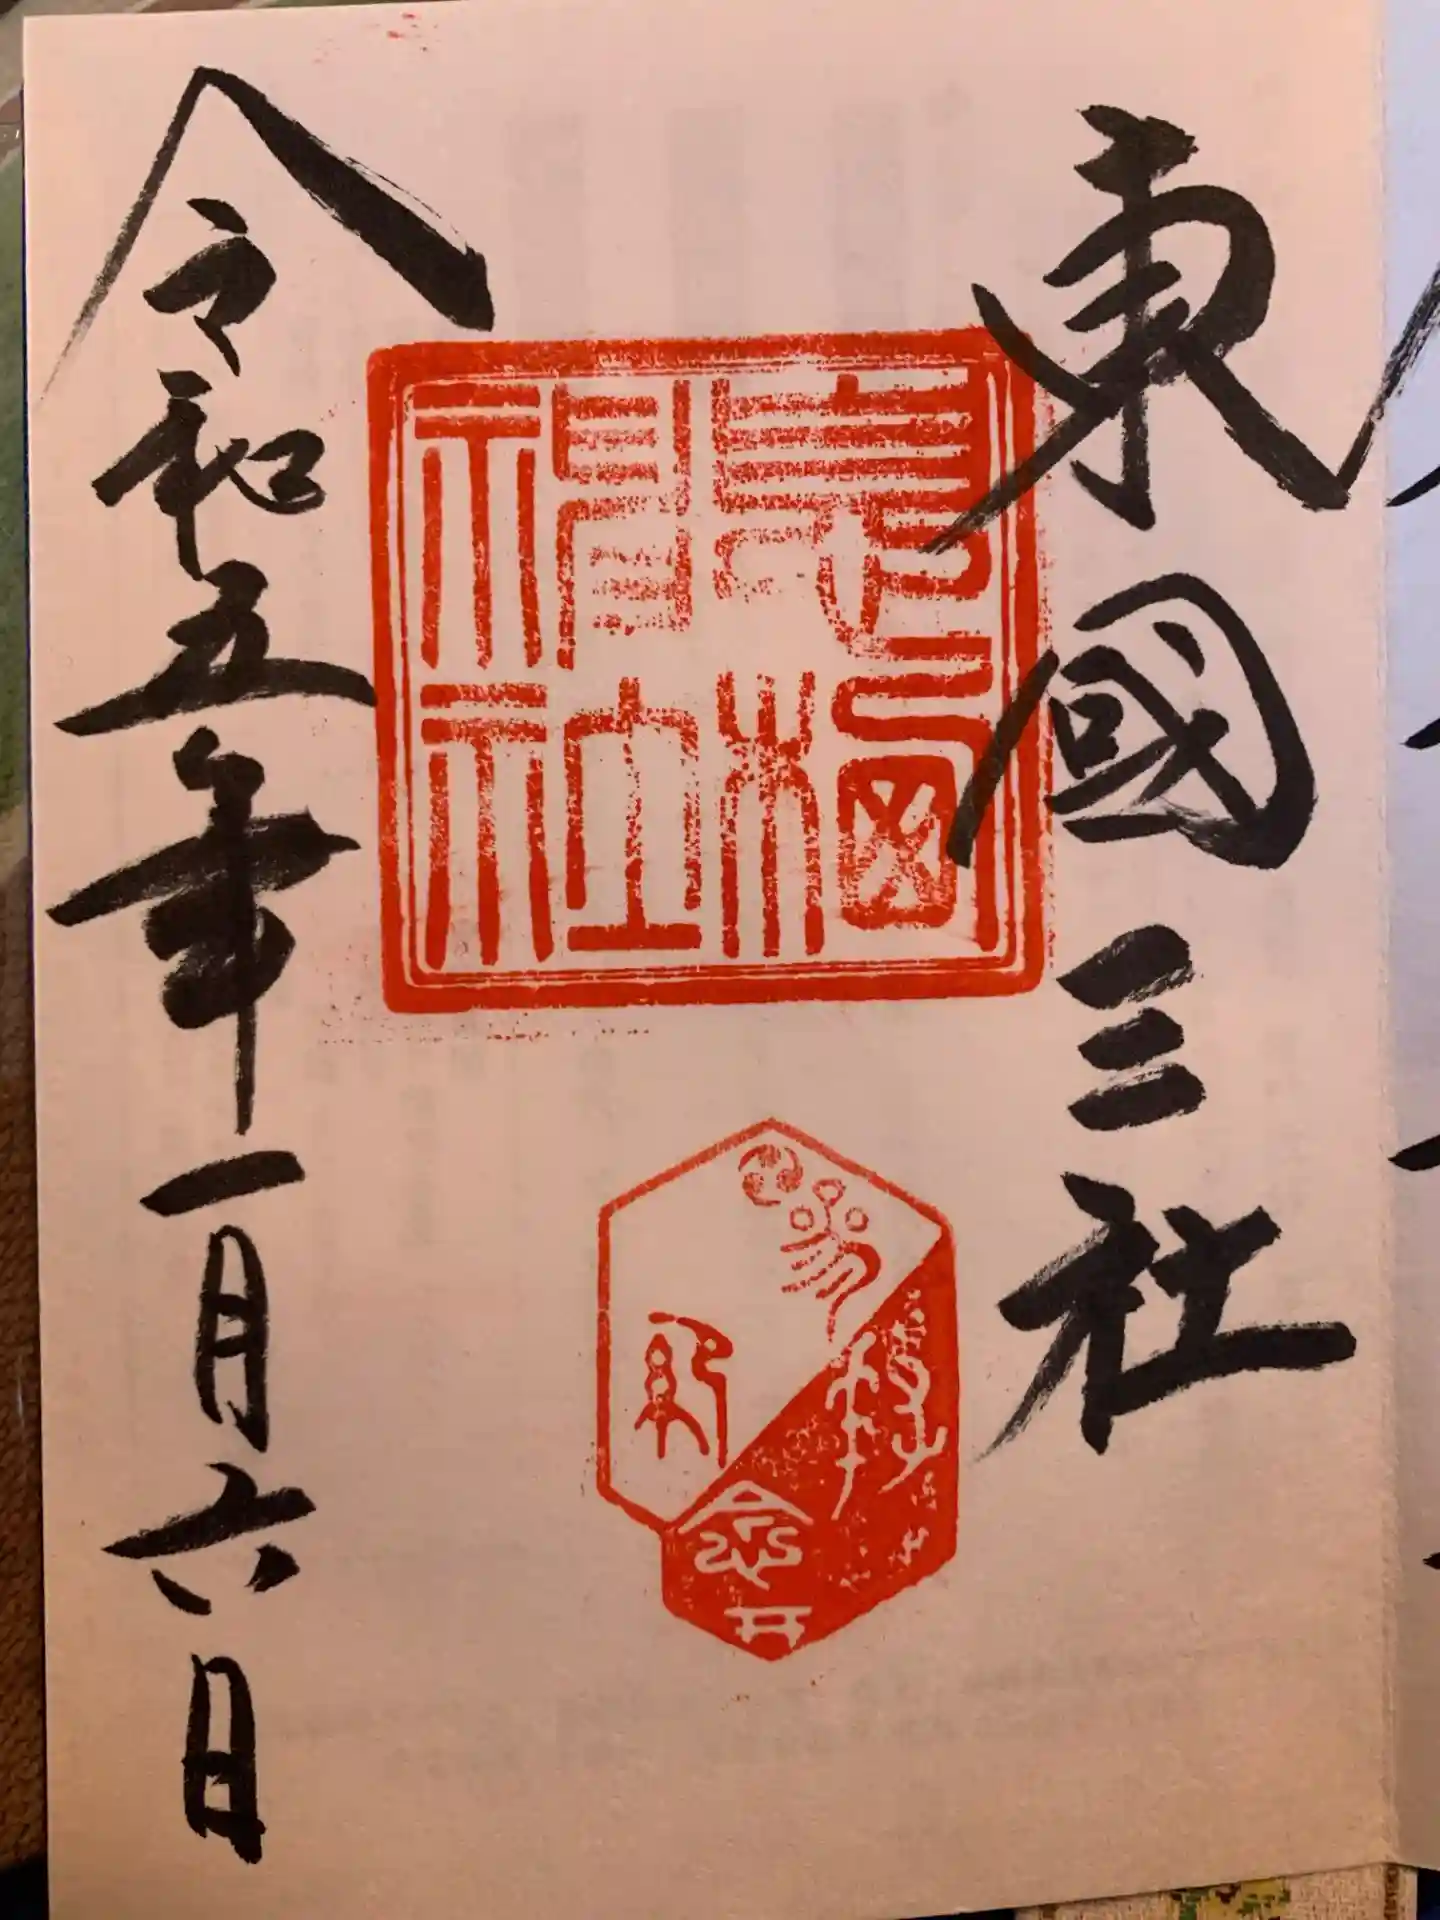 東國三社
息栖
神社
令和五年一月六日